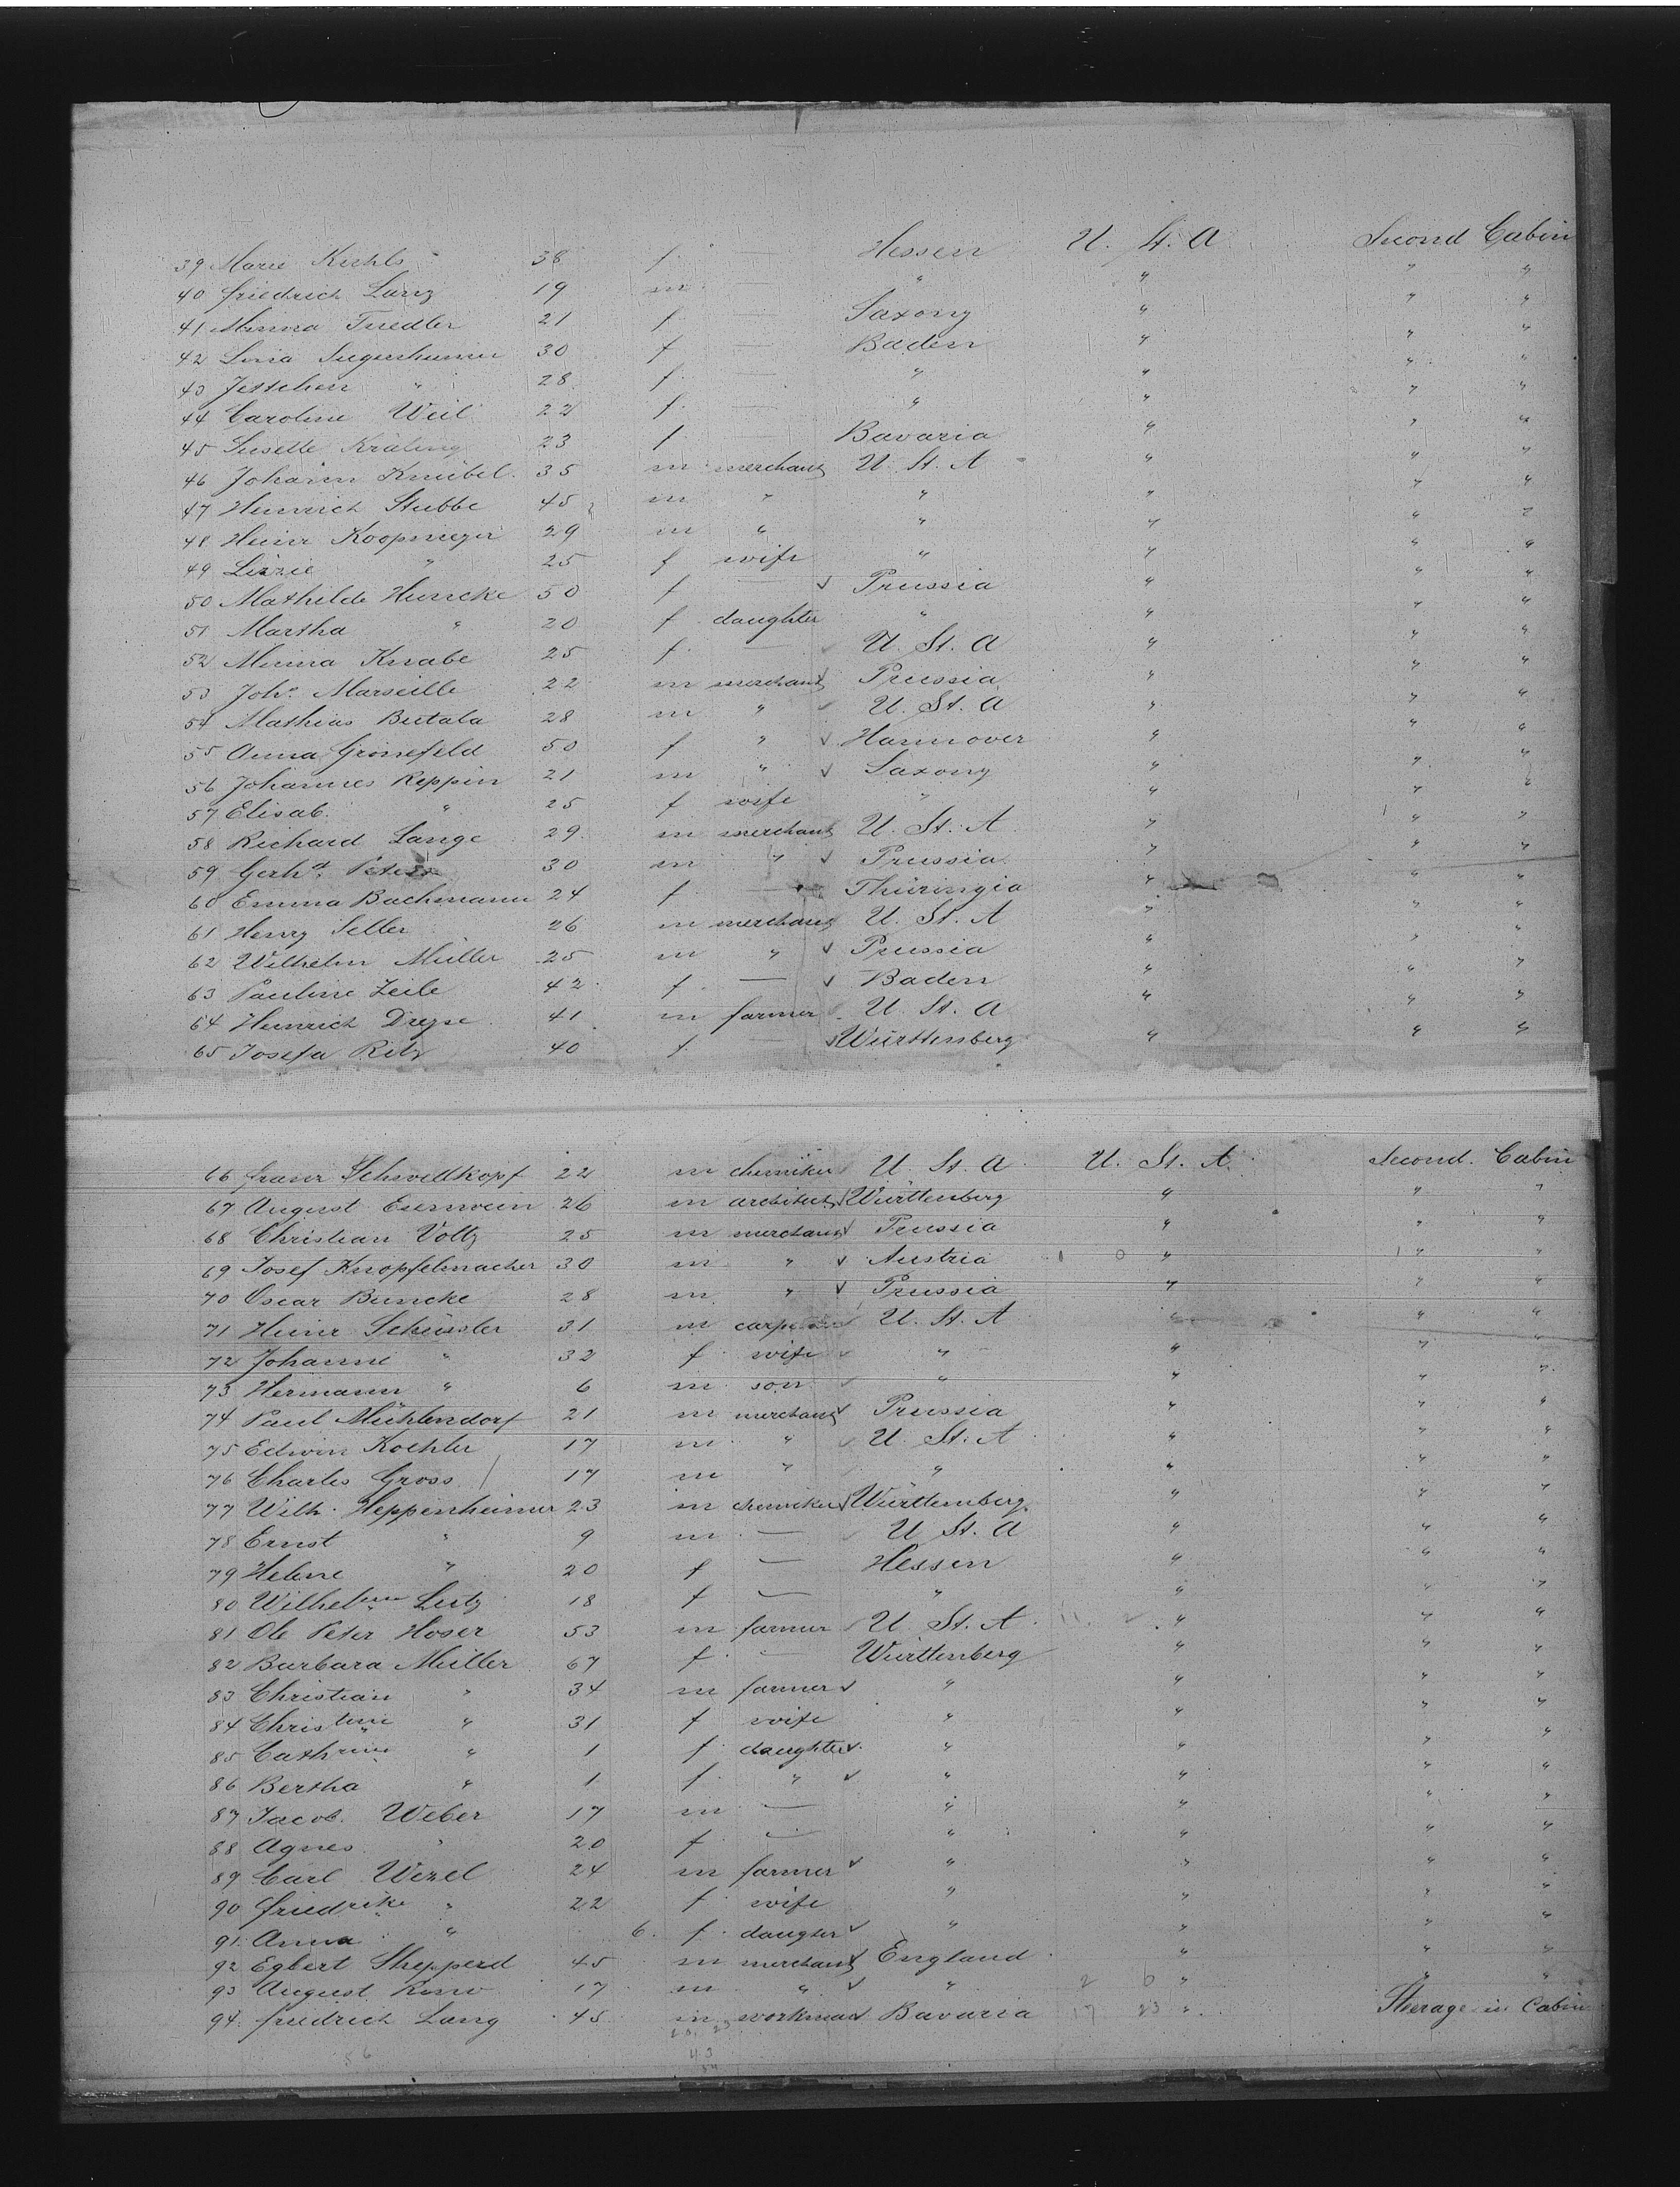 39 Marie Kiehls 38 f. — Hessen U. St. A Second Cabin
40 Friedrich Lang 19 m. — " " " "
41 Minna Friedler 21 f — Saxony " " "
42 Lina 30 f — Baden " " "
43 Jettchen " 28 f. — " " " "
44 Caroline Weil 22 f. — " " " "
45 Susette Kraling 23 f — Bavaria " " "
46 Johann Kniebel 35 m merchant U. St. A " " "
47 Heinrich Stubbe 45 m " " " " "
48 Heinr Koopmeyer 29 m " " " " "
49 Lizzie " 25 f wife " " " "
50 Mathilde Huncke 50 f — Prussia " " "
51 Martha " 20 f. daughter " " " "
52 Minna Knabe 25 f. — U. St. A " " "
53 Joh. Marseille 22 m merchant Prussia " " "
54 Mathias Butala 28 m " U. St. A " " "
55 Anna Gronefeld 50 f " Hannover " " "
56 Johannes Reppin 21 m " Saxony " " "
57 Elisab. " 25 f wife " " " "
58 Richard Lange 29 m merchant U. St. A " " "
59 Gerhd. Peters 30 m " Prussia " " "
60 Emma Bachmann 24 f. — Thüringia " " "
61 Henry Seller 26 m merchant U. St. A " " "
62 Wilhelm Müller 25 m " Prussia " " "
63 Pauline Zeile 42 f. — Baden " " "
64 Heinrich Dreyse 41 m farmer U. St. A " " "
65 Josefa Ritz 40 f. — Württenberg " " "
66 Franz Schwellkopf 22 m chemiker U. St. A U. St. A. Second. Cabin
67 August Esenwein 26 m architect Württenberg " " "
68 Christian Voltz 25 m merchant Prussia " " "
69 Josef Knopfelmacher 30 m " Austria " " "
70 Oscar Buncke 28 m " Prussia " " "
71 Heinr Schüssler 31 m U. St. A " " "
72 Johanne " 32 f. wife " " " "
73 Hermann " 6 m son " " " "
74 Paul Mühlendorf 21 m merchant Prussia " " "
75 Edwin Koehler 17 m " U. St. A " " "
76 Charles Gross 17 m " " " " "
77 Wilh. Heppenheimer 23 m chemiker Württemberg " " "
78 Ernst " 9 m — U St. A " " "
79 Helene " 20 f — Hessen " " "
80 Wilhelmine Lutz 18 f — " " " "
81 Ole Peter Hoser 53 m farmer U. St. A. " " "
82 Barbara Müller 67 f. — Württenberg " " "
83 Christian " 34 m farmer " " " "
84 Christine " 31 f wife " " " "
85 Cathrine " 1 f. daughter " " " "
86 Bertha " 1 f. " " " " "
87 Jacob. Weber 17 m — " " " "
88 Agnes " 20 f. — " " " "
89 Carl Wezel 24 m farmer " " " "
90 Friedrike " 22 f wife " " " "
91 Anna " 6. f. daugter " " " "
92 Egbert Shepperd 45 m merchant England " " "
93 August 17 m " " 2 6 " " "
94. Friedrich Lang 45 m workman Bavaria 17 23 " Steerage in Cabin